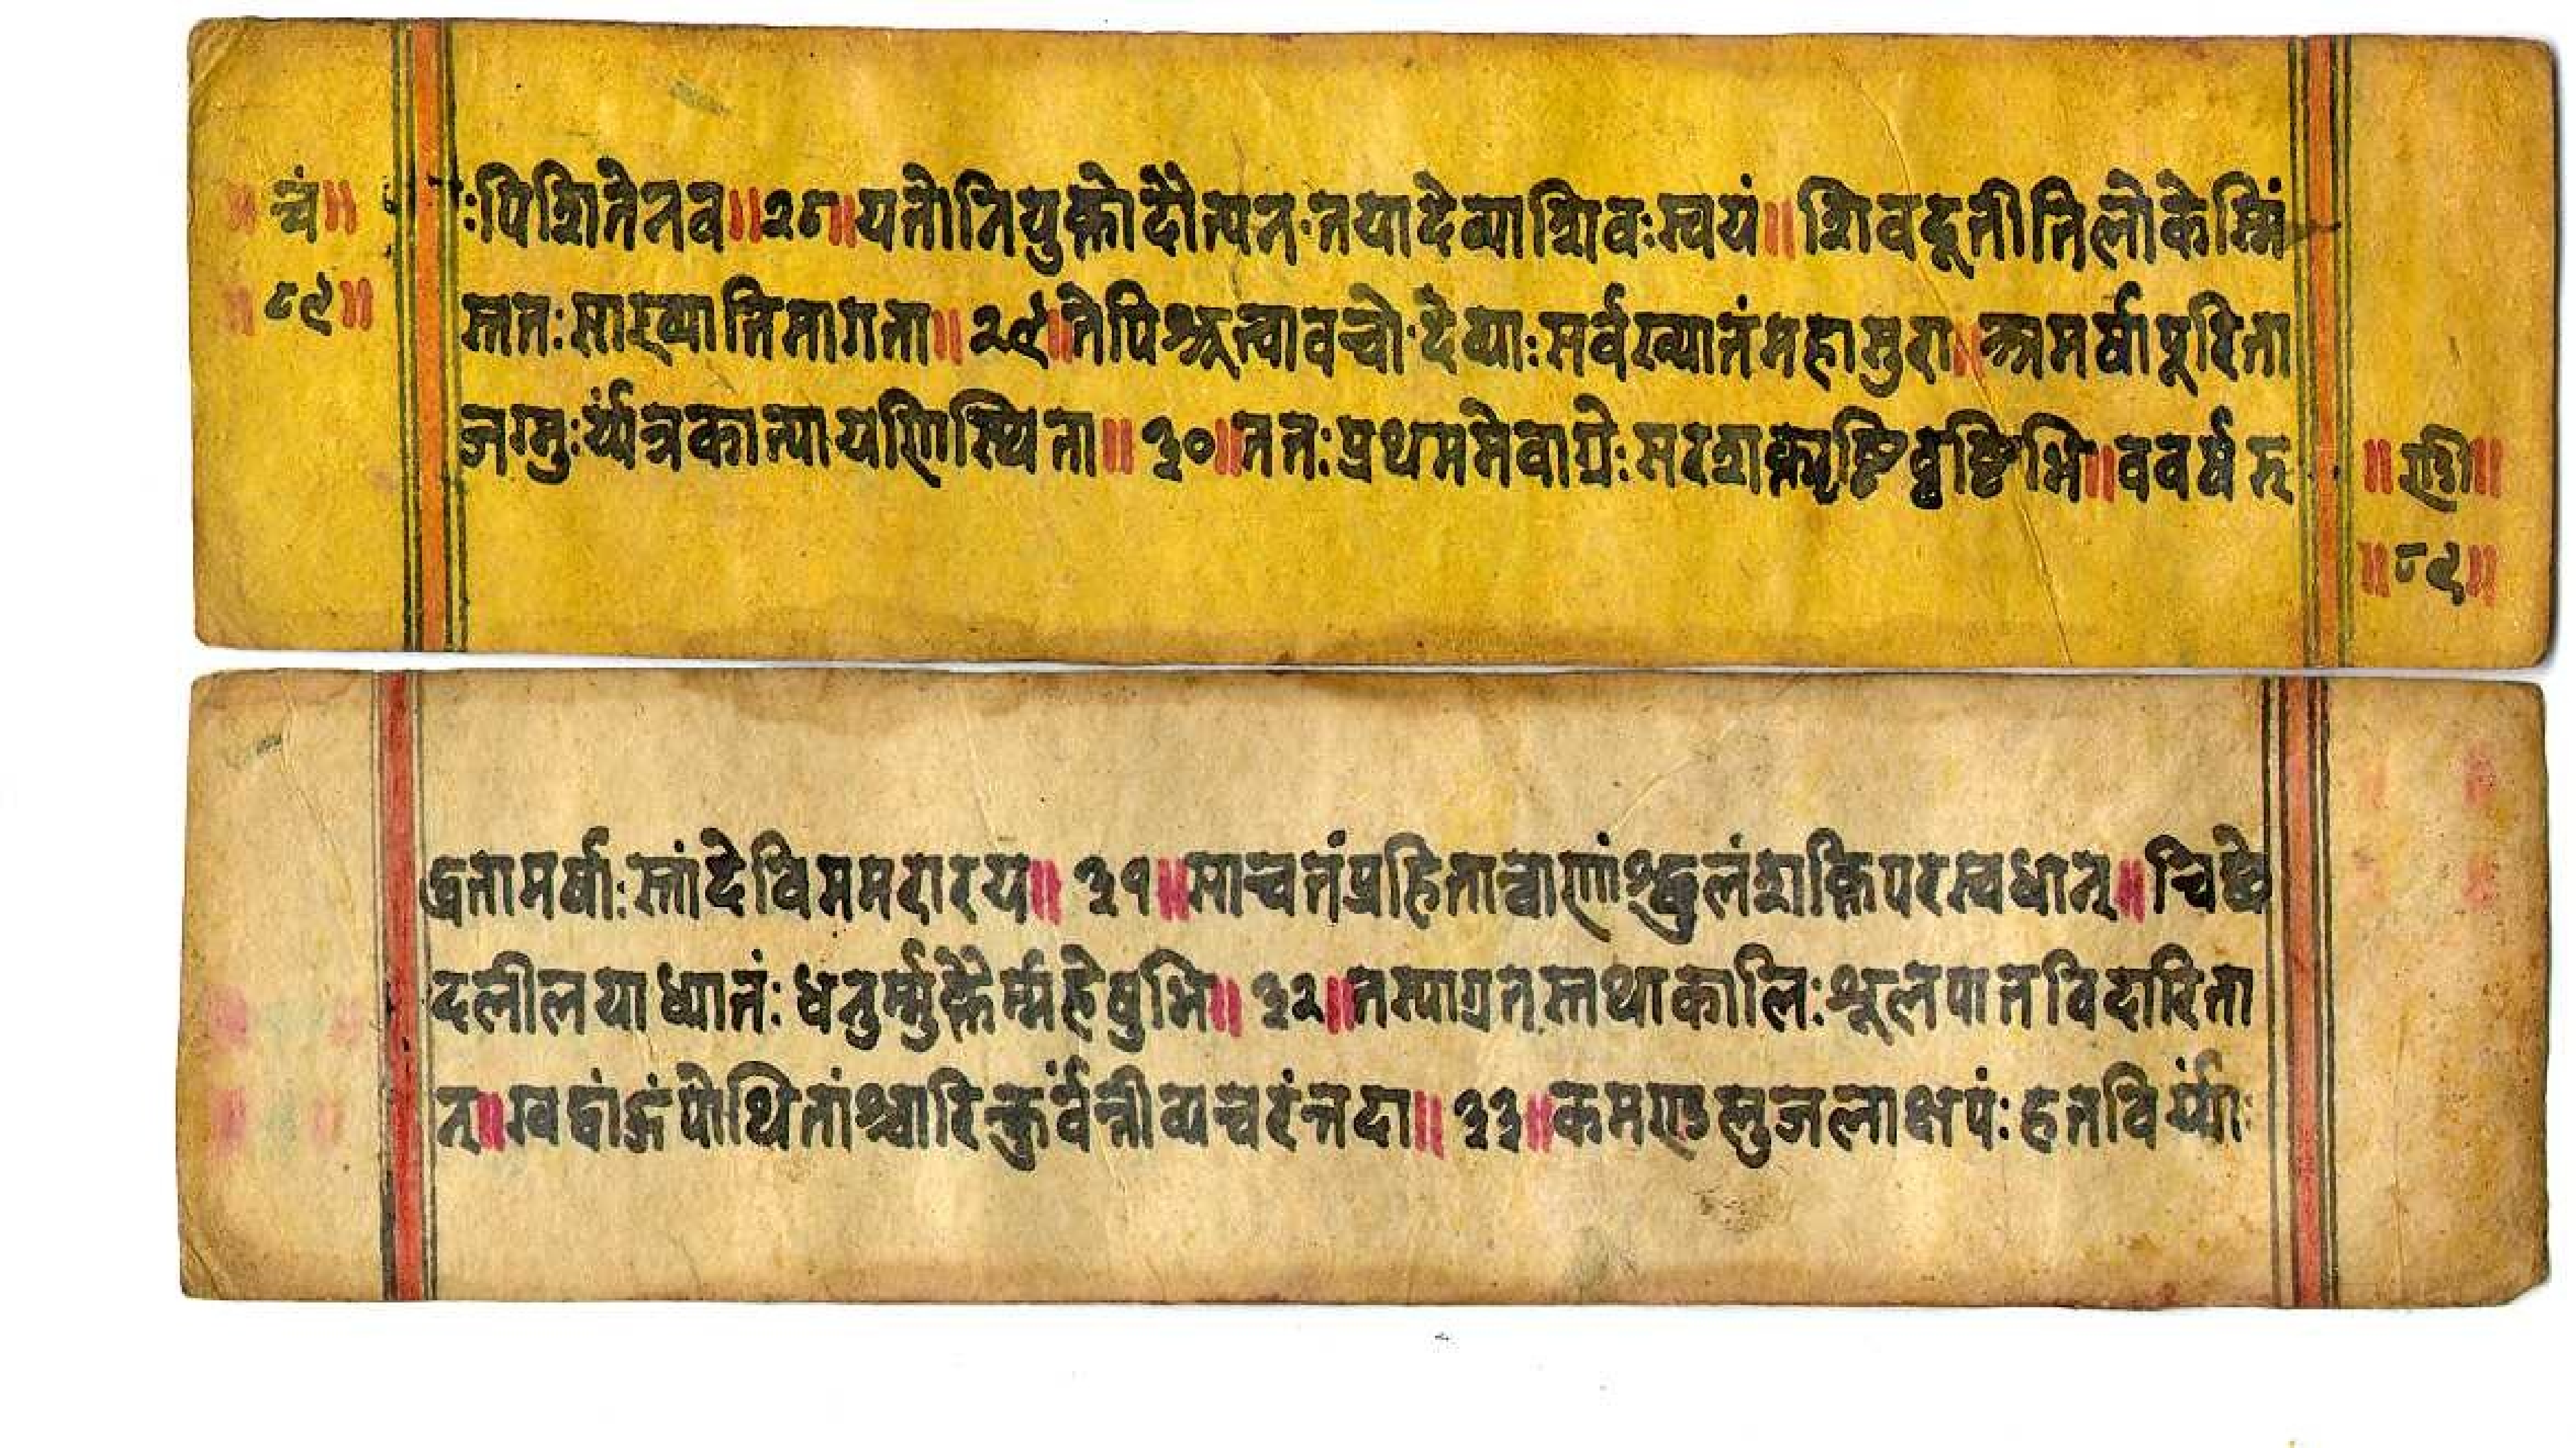 ॥ चं॥
॥ ८९॥
:पिशितेनव॥२८॥यतोनियुक्तोदौत्यनतयादेव्याशिवःस्वयं॥शिवदूतीतिलोकेस्मिं
स्ततःसाख्यातिमागता॥२९॥तेपिश्रूत्वावचोदेव्याःसर्वख्यातंमहासुरा॥अमर्षापूरिता
जग्मुःर्य्यत्रकात्यायणिस्थिता॥३०॥ततःप्रथममेवाग्रेःसरशक्त्यृष्टिवृष्टिभि॥ववर्षरु
॥८९॥
द्धतामर्षाःस्तांदेविममरारय॥३१॥साचतंप्रहितान्वाणांश्छुलंशक्तिपरस्वधान्॥चिछे
दलीलयाध्यातं:धनुर्म्मुक्तैर्म्महेषुभि॥३२॥तस्याग्रतस्तथाकालि:श्रूलपातविदारिता
न्॥खद्वांङ्गंपोथितांश्चारिन्कुर्वंन्तीव्यचरंन्तदा॥३३॥कमण्डलुजलाक्षपं:हतविर्य्यां: